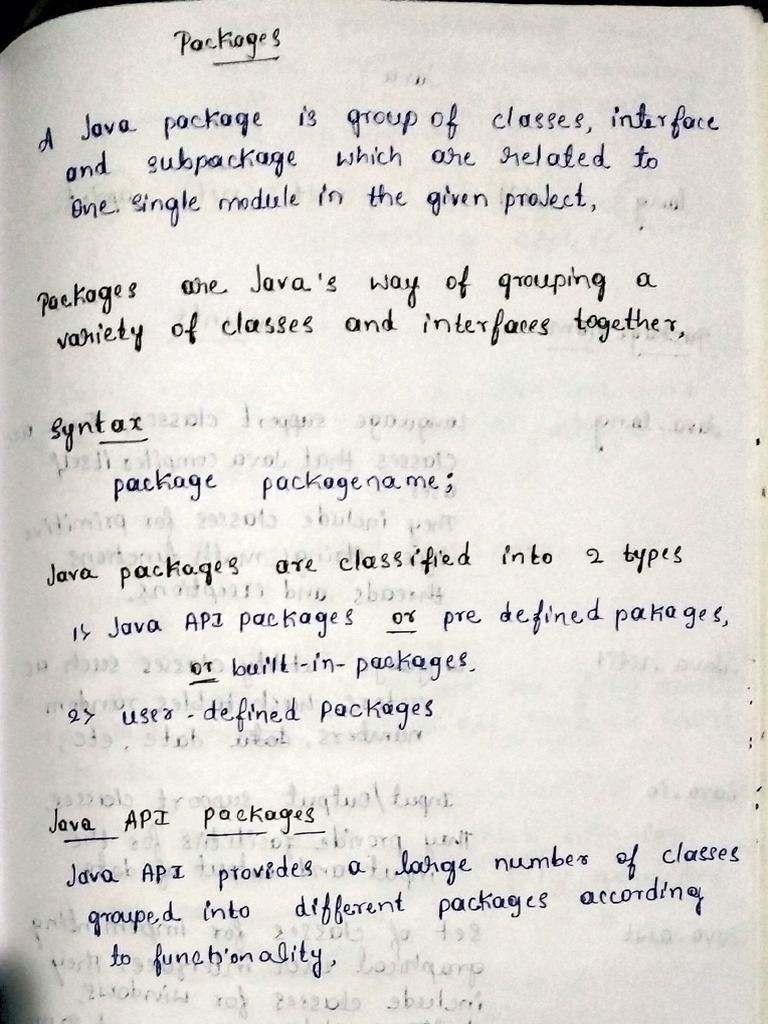 Packages
A Java package is group of classes, interface
and subpackage which are related to
one single module in the given project,
Packages are Java's way of grouping a
variety of classes and interfaces together,
Syntax
package packagename;
Java packages are classified into 2 types
1> Java API packages or pre defined pakages,
or built-in-packages.
2> user-defined packages
Java API packages
Java API provides a large number of classes
grouped into different packages according
to functionality,